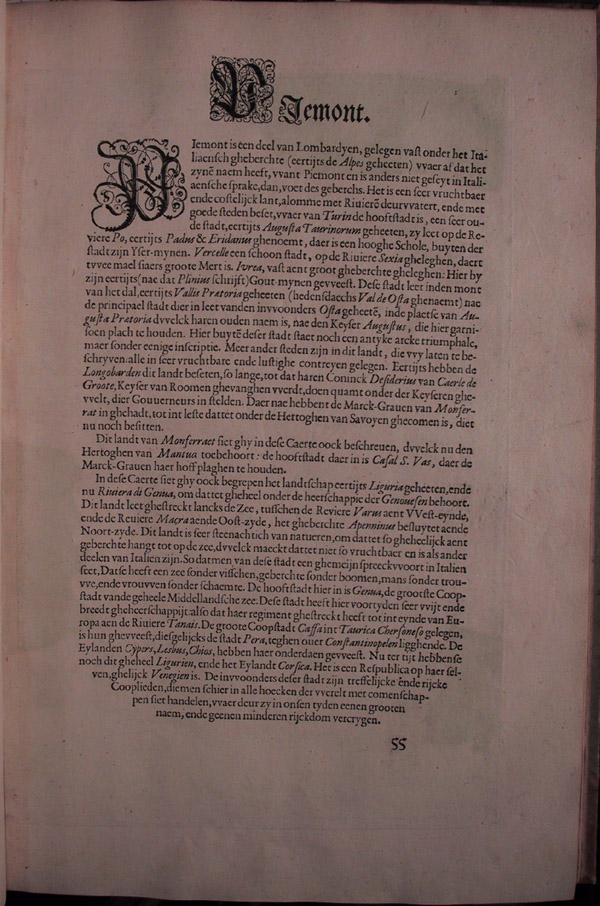 PIemont.
PIemont is een deel van Lombardyen, gelegen vast onder het Ita-
liaensch gheberchte (eertijts de Alpes geheeten) vvaer af dat het
zynẽ naem heeft, vvant Piemont en is anders niet geseyt in Itali-
aensche sprake, dan, voet des geberchs. Het is een seer vruchtbaer
ende costelijck lant, alomme met Riuierẽ deurvvatert, ende met
goede steden beset, vvaer van Turin de hooftstadt is, een seer ou-
de stadt, eertijts Augusta Taurinorum geheeten, zy leet op de Re-
viere Po, eertijts Padus & Eridanus ghenoemt, daer is een hooghe Schole, buyten der
stadt zijn Yser-mynen. Vercelle een schoon stadt, op de Riuiere Sexia gheleghen, daert
tvvee mael siaers groote Mert is. Iurea, vast aent groot gheberchte gheleghen: Hier by
zijn eertijts (nae dat Plinius schrijft) Gout-mynen gevveest. Dese stadt leet inden mont
van het dal, eertijts Vallis Pretoria geheeten (hedensdaechs Val de Osta ghenaemt) nae
de principael stadt die er leet vanden invvoonders Osta geheetẽ, inde plaetse van Au-
gusta Pratoria dvvelck haren ouden naem is, nae den Keyser Augustus, die hier garni-
soen plach te houden. Hier buytẽ deser stadt staet noch een antyke arcke triumphale,
maer sonder eenige inscriptie. Meer ander steden zijn in dit landt, die vvy laten te be-
schryven: alle in seer vruchtbare ende lustighe contreyen gelegen. Eertijts hebben de
Longobarden dit landt beseten, so lange, tot dat haren Coninck Desiderius van Caerle de
Groote, Keyser van Roomen ghevanghen vverdt, doen quamt onder der Keyseren ghe-
vvelt, dier Gouuerneurs in stelden. Daer nae hebbent de Marck-Grauen van Monfer-
rat in ghehadt, tot int leste dattet onder de Hertoghen van Savoyen ghecomen is, diet
nu noch besitten.
Dit landt van Monferraet siet ghy in dese Caerte oock beschreuen, dvvelck nu den
Hertoghen van Mantua toebehoort: de hooftstadt daer in is Casal S. Vas, daer de
Marck-Grauen haer hoff plaghen te houden.
In dese Caerte siet ghy oock begrepen het landtschap eertijts Liguria geheeten, ende
nu Riuiera di Genua, om dattet gheheel onder de heerschappie der Genouesen behoort.
Dit landt leet ghestreckt lancks de Zee, tusschen de Reviere Varus aent VVest-eynde,
ende de Reuiere Macra aende Oost-zyde, het gheberchte Apenninus besluytet aende
Noort-zyde. Dit landt is seer steenachtich van natueren, om dattet so gheheelijck aent
geberchte hangt tot op de zee, dvvelck maeckt dattet niet so vruchtbaer en is als ander
deelen van Italien zijn. So datmen van dese stadt een ghemeijn spreeckvvoort in Italien
seet, Datse heeft een zee sonder visschen, geberchte sonder boomen, mans sonder trou-
vve, ende vrouvven sonder schaemte. De hooftstadt hier in is Genua, de grootste Coop-
stadt vande geheele Middellandsche zee. Dese stadt heeft hier voortyden seer vvijt ende
breedt gheheerschappijt: also dat haer regiment ghestreckt heeft tot int eynde van Eu-
ropa aen de Riuiere Tanais. De groote Coopstadt Caffa int Taurica Chersoneso gelegen,
is hun ghevveest, diesgelijcks de stadt Pera, teghen ouer Constantinopolen ligghende. De
Eylanden Cypers, Lesbus, Chios, hebben haer onderdaen gevveest. Nu ter tijt hebbense
noch dit gheheel Ligurien, ende het Eylandt Corsica. Het is een Respublica op haer sel-
ven, ghelijck Venegien is. De invvoonders deser stadt zijn treffelijcke ẽnde rijcke
Cooplieden, diemen schier in alle hoecken der vverelt met comenschap-
pen siet handelen, vvaer deur zy in onsen tyden eenen grooten
naem, ende geenen minderen rijckdom vercrygen.
55